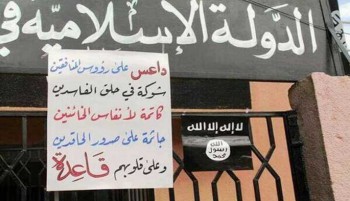 الدولة الإسلامية في
داعس على رؤوس المنافقين
شوكة في حلق الفاسدين
كاتمة لأنفاس الخائنين
جاثمة على صدور الحاقدين
وعلى قلوبهم قاعدة
لا إله إلا الله
الله
رسول
محمد